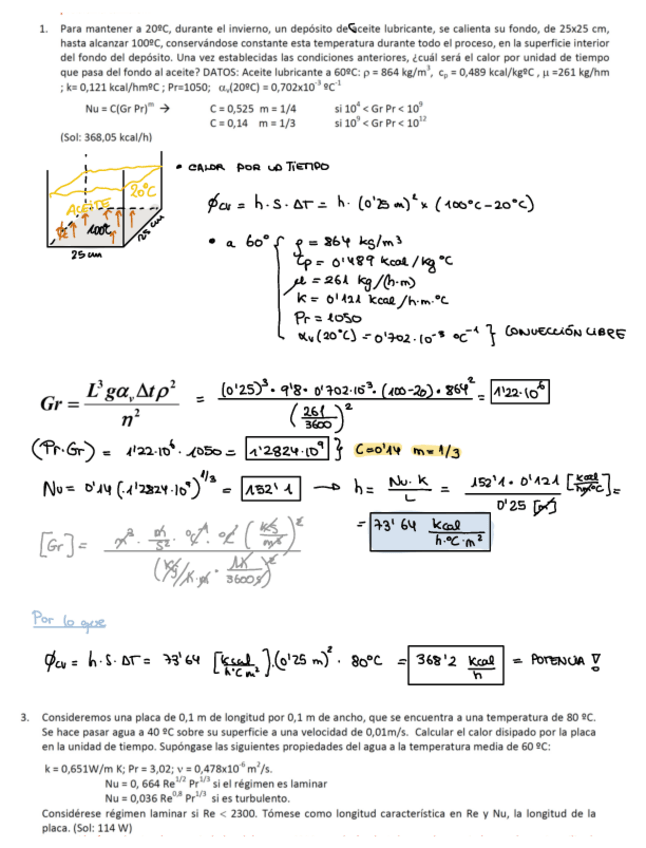 1. Para mantener a 20ºC, durante el invierno, un depósito de aceite lubricante, se calienta su fondo, de 25x25 cm,
hasta alcanzar 100ºC, conservándose constante esta temperatura durante todo el proceso, en la superficie interior
del fondo del depósito. Una vez establecidas las condiciones anteriores, ¿cuál será el calor por unidad de tiempo
que pasa del fondo al aceite? DATOS: Aceite lubricante a 60ºC: ρ = 864 kg/m³, cp = 0,489 kcal/kgºC , μ =261 kg/hm
; k= 0,121 kcal/hmºC ; Pr=1050; αv(20ºC) = 0,702x10⁻³ ºC⁻¹
Nu = C(Gr Pr)ᵐ → C = 0,525 m = 1/4 si 10⁴ < Gr Pr < 10⁹
C = 0,14 m = 1/3 si 10⁹ < Gr Pr < 10¹²
(Sol: 368,05 kcal/h)
• CALOR POR UD TIEMPO
20ºC
ACEITE
100ºC
25 cm
25 cm
ϕcv = h · S · ΔT = h · (0'25 m)² x (100ºC - 20ºC)
• a 60º { ρ = 864 kg/m³
cp = 0'489 kcal/kgºC
μ = 261 kg/(h·m)
K = 0'121 kcal/h·m·ºC
Pr = 1050
αv (20ºC) = 0'702·10⁻³ ºC⁻¹ } CONVECCIÓN LIBRE
Gr = L³gαvΔtρ² / n² = (0'25)³ · 9'8 · 0'702·10⁻³ · (100-20) · 864² / (261/3600)² = 1'22·10⁶
(Pr·Gr) = 1'22·10⁶ · 1050 = 1'2824·10⁹ } C=0'14 m=1/3
Nu = 0'14 (·1'2824·10⁹)^1/3 = 152'1 → h = Nu·K / L = 152'1 · 0'121 [kcal/hmºC] / 0'25 [m] =
= 73'64 kcal / h·ºC·m²
[Gr] =
Por lo que
ϕcv = h · S · ΔT = 73'64 [kcal/hºCm²]·(0'25 m)² · 80ºC = 368'2 kcal/h = POTENCIA !
3. Consideremos una placa de 0,1 m de longitud por 0,1 m de ancho, que se encuentra a una temperatura de 80 ºC.
Se hace pasar agua a 40 ºC sobre su superficie a una velocidad de 0,01m/s. Calcular el calor disipado por la placa
en la unidad de tiempo. Supóngase las siguientes propiedades del agua a la temperatura media de 60 ºC:
k = 0,651W/m K; Pr = 3,02; ν = 0,478x10⁻⁶ m²/s.
Nu = 0, 664 Re^1/2 Pr^1/3 si el régimen es laminar
Nu = 0,036 Re^0,8 Pr^1/3 si es turbulento.
Considérese régimen laminar si Re < 2300. Tómese como longitud característica en Re y Nu, la longitud de la
placa. (Sol: 114 W)